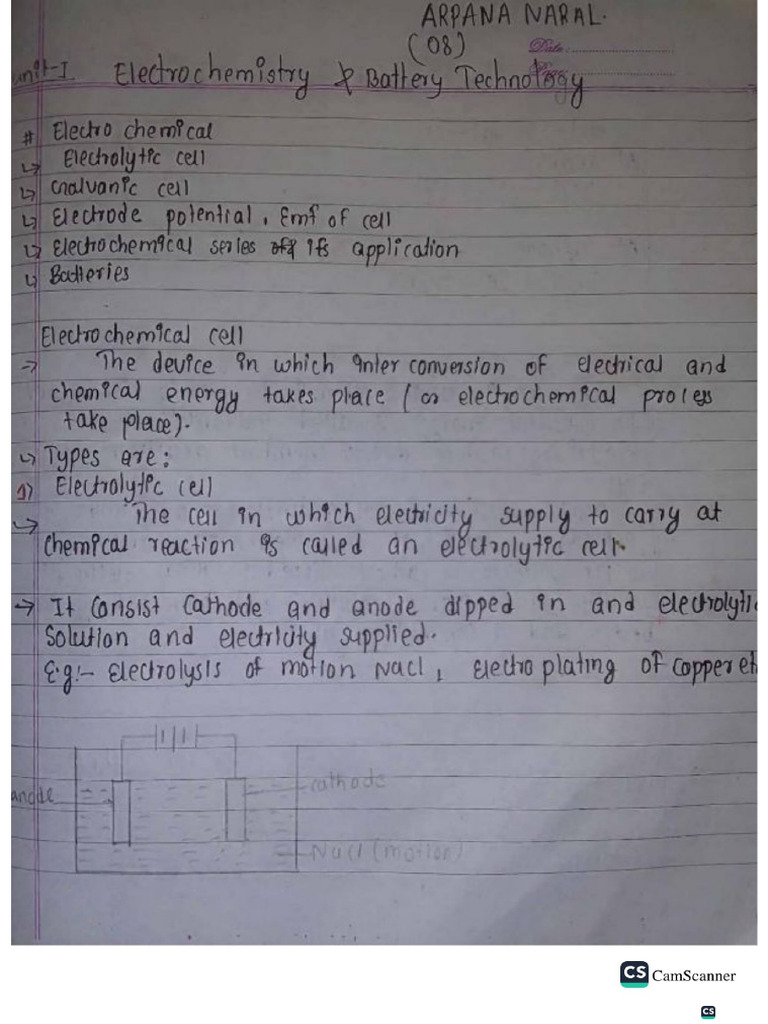 ARPANA NARAL.
(08)
Date:
unit-I Electrochemistry & Battery Technology
# Electro chemical
↳ Electrolytic cell
↳ Gnalvanic cell
↳ Electrode potential, Emf of cell
↳ Electrochemical series its application
↳ Batteries
Electrochemical cell
→ The device in which inter conversion of electrical and
chemical energy takes place (or electrochemical process
take place).
↳ Types are:
1) Electrolytic cell
↳ The cell in which electricity supply to carry at
chemical reaction is called an electrolytic cell.
→ It consist cathode and anode dipped in and electrolyti
solution and electricity supplied.
E.g:- Electrolysis of motion Nacl, Electro plating of copper et
anode
cathode
Nacl (motion)
CS CamScanner
CS